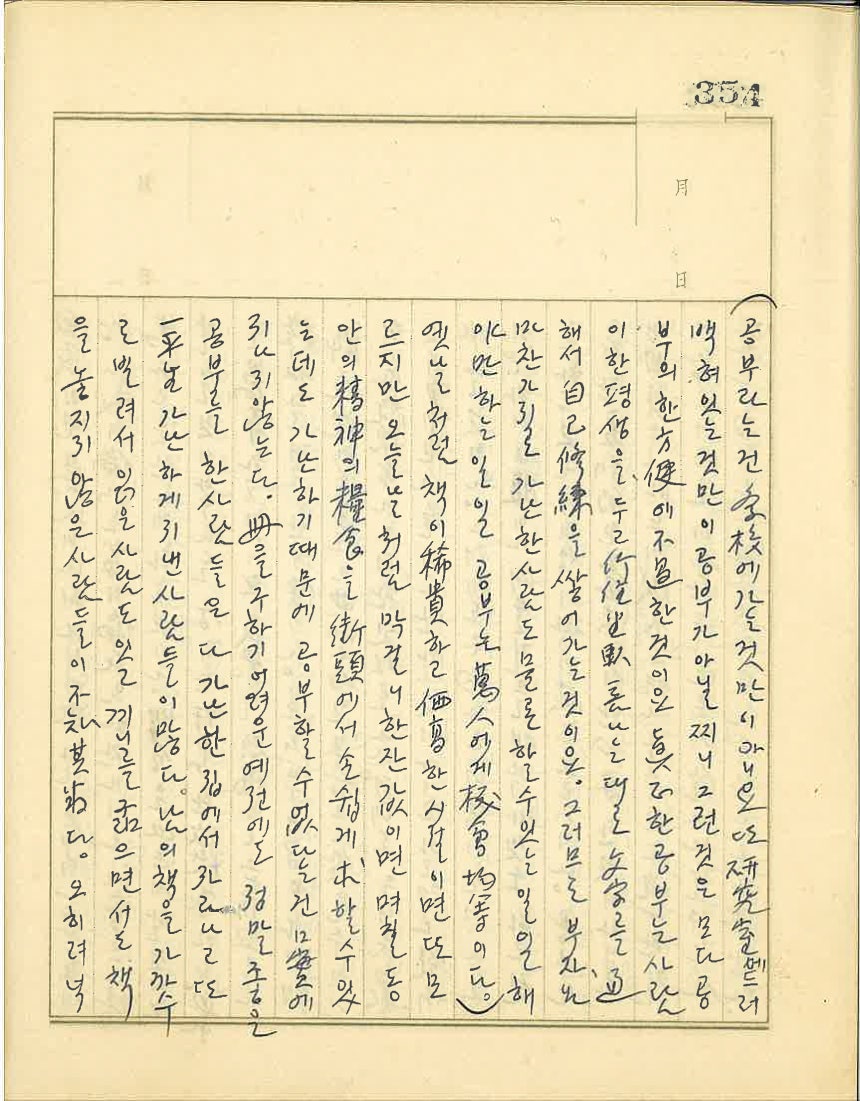 354
月
日
공부라는 건 學校에 가는 것만이 아니요 또 硏究室에 드러
백혀 있는 것만이 공부가 아닐찌니 그런 것은 모다 공
부의 한 方便에 不過한 것이요 眞正한 공부는 사람
이 한 평생을 두고 行住坐臥 틈나는 대로 文字를 通
해서 自己修練을 쌓어가는 것이요. 그러므로 부자나
마찬가지로 가난한 사람도 물론 할 수 있는 일일 해
야만 하는 일일 공부는 萬人에게 機會均等이다.
옛날처럼 책이 稀貴하고 価高한 시절이면 또 모
르지만 오늘날처럼 막걸니 한 잔 값이면 며칠 동
안의 精神의 糧食을 街頭에서 손쉽게 求할 수 있
는데도 가난하기 때문에 공부할 수 없다는 건 口實에
지나지 않는다. 冊을 구하기 어려운 예전에도 정말 좋은
공부를 한 사람들은 다 가난한 집에서 자라나고 또
一平生 가난하게 지낸 사람들이 많다. 남의 책을 가까수
로 빌려서 읽은 사람도 있고 끼니를 굶으면서도 책
을 놓지지 않은 사람들이 不知其數다. 오히려 넉